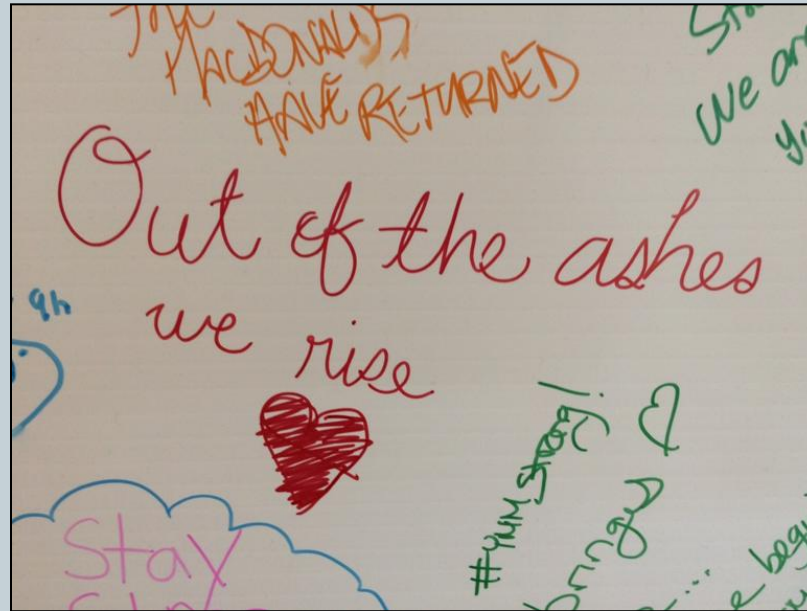 MACDONALDS
HAVE RETURNED
We are
Out of the ashes
we rise
#YMM Strong!
Stay